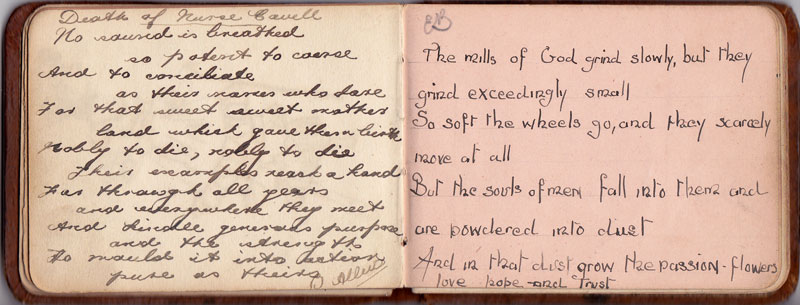 Death of Nurse Cavell
No sound is breathed
so potent to coerce
And to conciliate
as their names who dare
For that sweet sweet mother
land which gave them birth
Nobly to die, nobly to die
Their examples reach a hand
Far through all years
and everywhere they meet
And kindle generous purpose
and the strength
To mould it into action
pure as theirs
D Allen
EB
The mills of God grind slowly, but they
grind exceedingly small
So soft the wheels go, and they scarcely
move at all
But the souls of men fall into them and
are powdered into dust
And in that dust grow the passion-flowers
love hope and trust